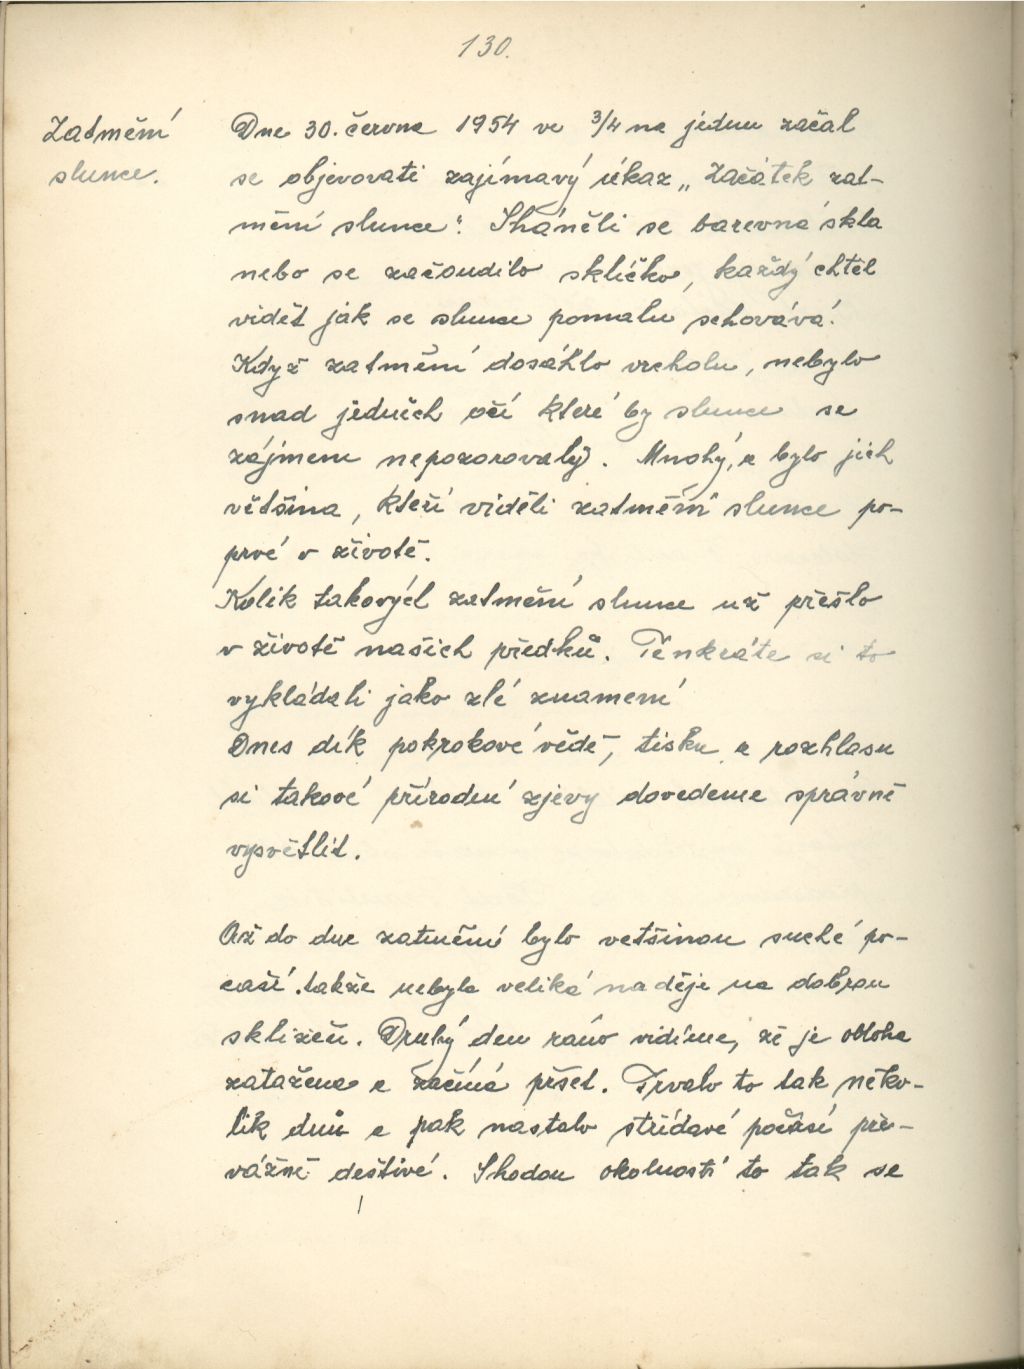 130.
Zatmění
slunce.
Dne 30. června 1954 ve 3/4 na jednu začal
se objevovati zajímavý úkaz „Začátek zat-
mění slunce“. Sháněli se barevná skla
nebo se začoudilo sklíčko, každý chtěl
vidět jak se slunce pomalu schovává.
Když zatmění dosáhlo vrcholu, nebylo
snad jedněch očí které by slunce se
zájmem nepozorovaly. Mnohý, a bylo jich
většina, kteří viděli zatmění slunce po-
prvé v životě.
Kolik takových zatmění slunce už přešlo
v životě našich předků. Tenkráte si to
vykládali jako zlé znamení
Dnes dík pokrokové vědě, tisku a rozhlasu
si takové přírodní zjevy dovedeme správně
vysvětlit.
Až do dne zatmění bylo vetšinou suché po-
časí. takže nebyla veliká naděje na dobrou
sklizeň. Druhý den ráno vidíme, že je obloha
zatažena a začíná pršet. Trvalo to tak něko-
lik dnů a pak nastalo střídavé počasí pře-
vážně deštivé. Shodou okolností to tak se